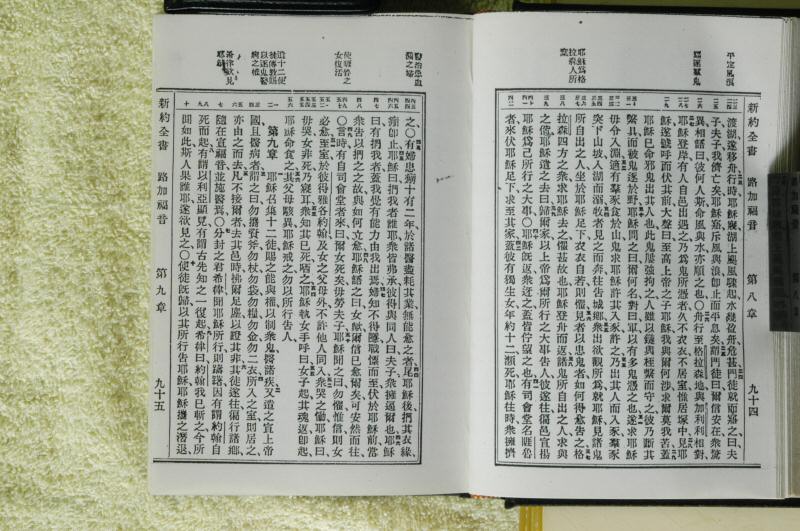 新約全書 路加福音 第八章 九十四
平定風浪
耶穌爲格
拉森人所
渡湖遂移舟行時耶穌寢湖上颶風驟起水幾盈舟危甚門徒就而寤之曰夫
子夫子我儕亡矣耶穌起斥風與浪卽止而平息矣謂門徒曰爾信安在衆駭
異相語曰彼何人斯命風與水亦順之也〇舟行至格拉森地與加利利相對
耶穌登岸有人自邑出遇之乃爲鬼所憑者久不衣衣不居室惟居塚中見耶
穌遂號呼而伏其前大聲曰至高上帝之子耶穌我與爾何涉求爾莫我苦蓋
耶穌已命邪鬼出其人也此鬼屢强拘之人雖以鐵與桎繫而守之彼乃斷其
繫具而被鬼逐於野耶穌問之曰爾何名對曰軍以有多鬼憑之也遂求耶穌
毋令入淵適有羣豕食於山鬼求耶穌許其入豕許之乃出其人而入豕羣豕
突下山坡入湖而溺牧者見之而奔往告城鄉衆出欲觀所爲就耶穌見諸鬼
所自出之人坐於耶穌足下衣衣自若則懼見者以患鬼者如何得愈告之格
拉森四方之衆求耶穌去之懼甚故也耶穌登舟而返諸鬼所自出之人求與
之偕耶穌遣之去曰歸爾家以上帝爲爾所行之大事告人彼遂往徧邑宣揚
耶穌爲己所行之大事〇耶穌旣返衆迓之蓋皆佇望也有司會堂名睚魯
者來伏耶穌足下求至其家蓋彼有獨生女年約十二瀕死耶穌往時衆擁擠
醫治患血
漏之婦
使睚魯之
女復活
遣十二使
徒傳敎賜
以逐鬼醫
病之權
希律欲見
耶穌
之〇有婦患血漏十有二年於諸醫盡耗其業無能愈之者尾耶穌後捫其衣緣
漏卽止耶穌曰捫我者誰耶衆皆弗承彼得與同人曰夫子衆擁逼爾也耶穌
曰有捫我者蓋我覺有能力由我出焉婦知不得隱戰慄而至伏於耶穌前當
衆告以捫之之故與如何立愈耶穌語之曰女歟爾信已愈爾矣可安然而往
〇言時有自司會堂者來曰爾女死矣毋勞夫子耶穌聞之曰勿懼惟信則女
必愈至室於彼得雅各約翰及女之父母外不許他人同入衆哭之慟耶穌曰
毋哭女非死乃寢耳衆知其已死哂之耶穌執女手呼曰女子起其魂返卽起
耶穌命食之其父母駭異耶穌戒之勿以所行告人
第九章 耶穌召集十二徒賜之能與權以制衆鬼醫諸疾又遣之宣上帝
國且醫病者謂之曰勿攜資斧勿杖勿袋勿糧勿金勿二衣所入之室則居之
亦由之而去凡不接爾者去其邑時拂爾足塵以證其非其徒遂往徧行諸鄉
隨在宣福音並施醫焉〇分封之君希律聞耶穌所行則躊躇因有謂約翰自
死而起有謂以利亞顯見有謂古先知之一復起希律曰約翰我已斬之今所
聞如此斯人果誰耶遂欲見之〇使徒旣歸以其所行告耶穌耶穌攜之潛退
新約全書 路加福音 第九章 九十五